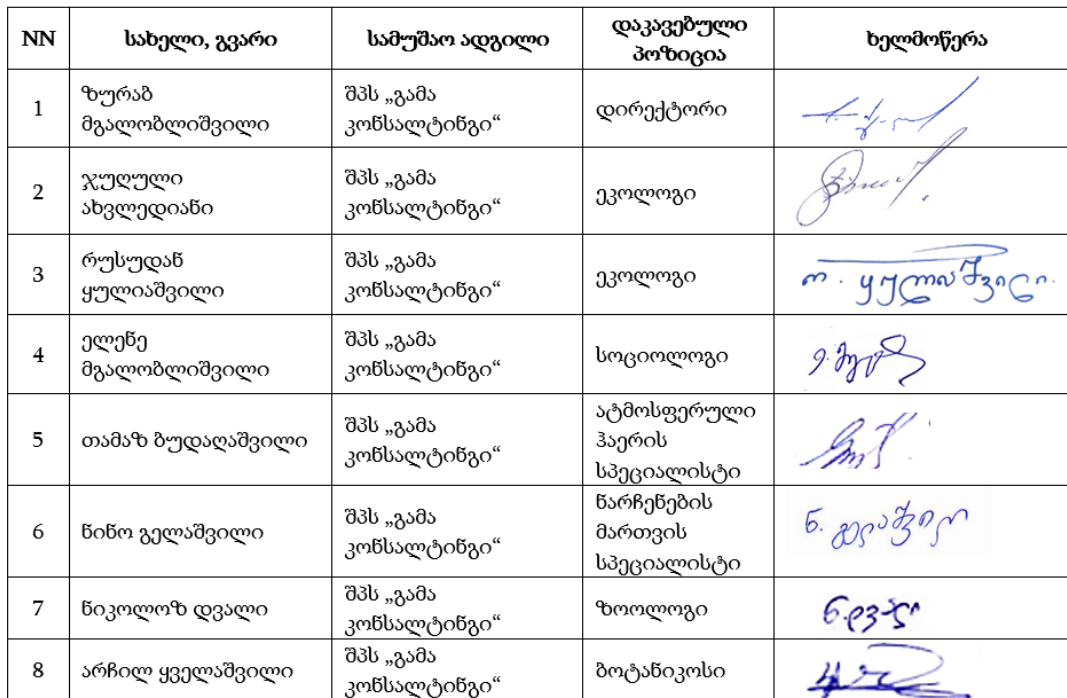 NN
სახელი, გვარი
სამუშაო ადგილი
დაკავებული
პოზიცია
ხელმოწერა
1
ზურაბ
მგალობლიშვილი
შპს „გამა
კონსალტინგი“
დირექტორი
2
ჯუღული
ახვლედიანი
შპს „გამა
კონსალტინგი“
ეკოლოგი
3
რუსუდან
ყულიაშვილი
შპს „გამა
კონსალტინგი“
ეკოლოგი
4
ელენე
მგალობლიშვილი
შპს „გამა
კონსალტინგი“
სოციოლოგი
5
თამაზ ბუდაღაშვილი
შპს „გამა
კონსალტინგი“
ატმოსფერული
ჰაერის
სპეციალისტი
6
ნინო გელაშვილი
შპს „გამა
კონსალტინგი“
ნარჩენების
მართვის
სპეციალისტი
7
ნიკოლოზ დვალი
შპს „გამა
კონსალტინგი“
ზოოლოგი
8
არჩილ ყველაშვილი
შპს „გამა
კონსალტინგი“
ბოტანიკოსი